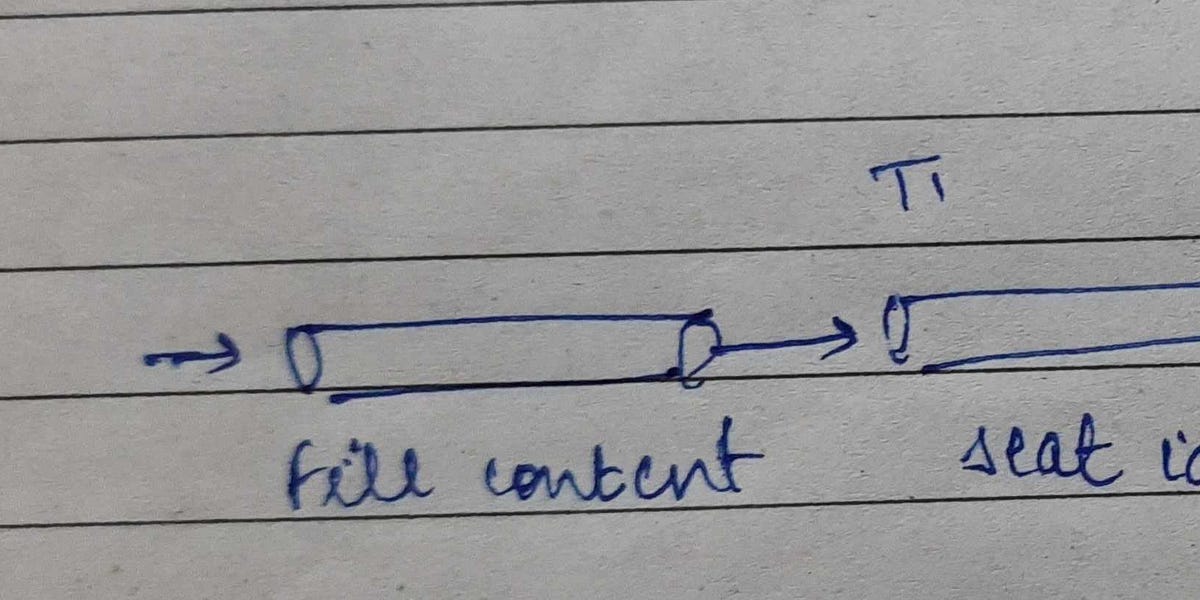 T1
fill content seat